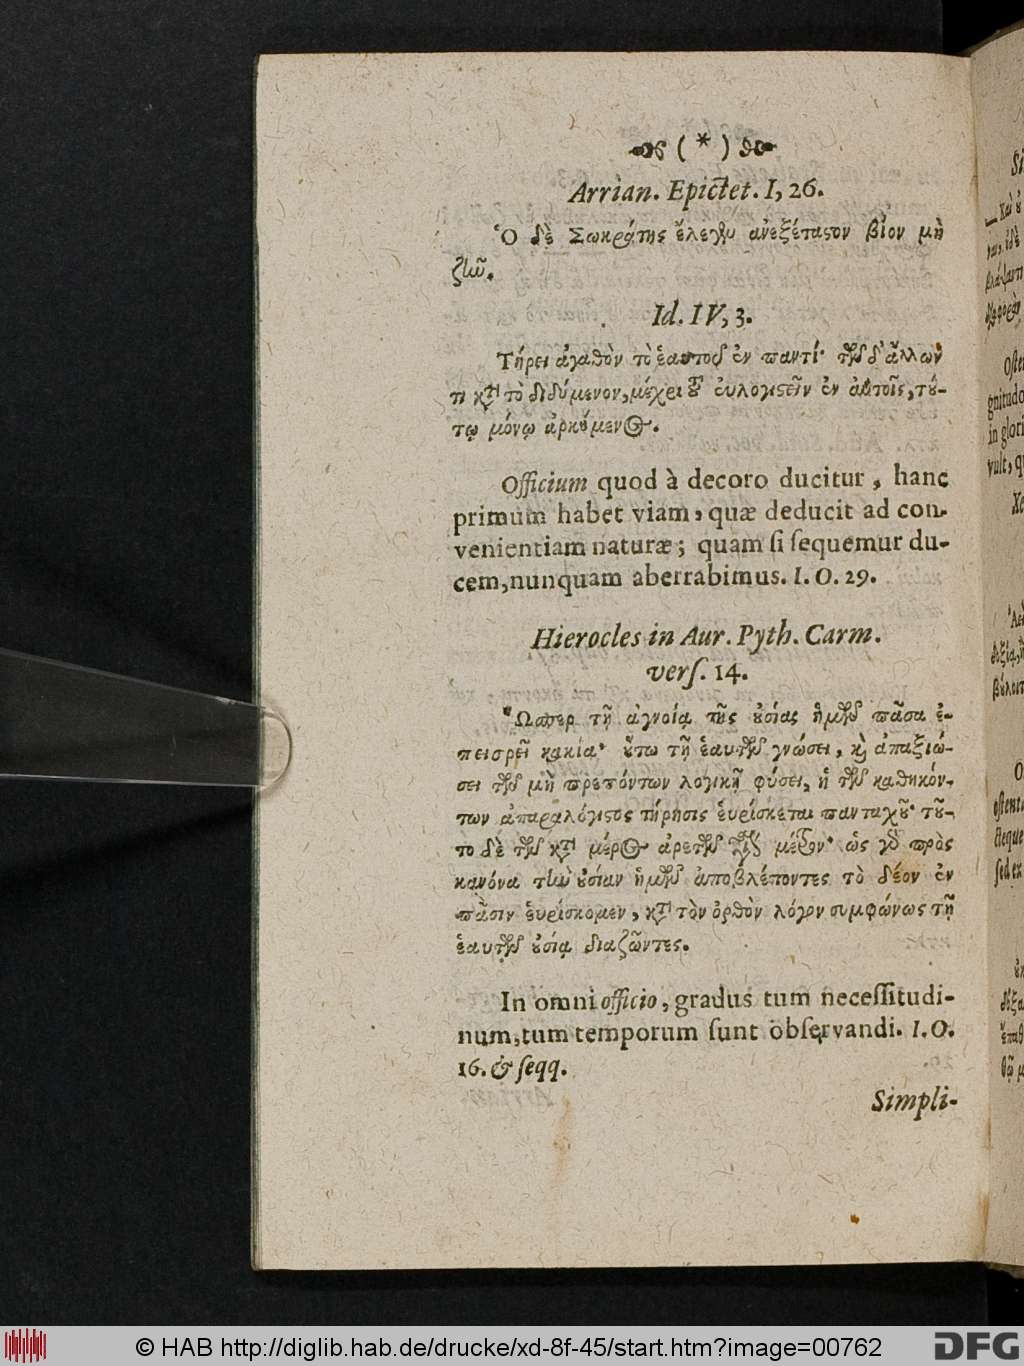 ( * )
Arrian. Epictet. I, 26.
Ὁ δὲ Σωκράτης ἔλεγεν ἀνεξέταστον βίον μὴ
ζῆν.
Id. IV, 3.
Τήρει ἀγαθὸν τὸ ἑαυτοῦ ἐν παντί· τῶν δ' ἄλλων
τι κατὰ τὸ διδόμενον, μέχρι τοῦ εὐλογιστεῖν ἐν αὐτοῖς, τού-
τῳ μόνῳ ἀρκούμενος.
Officium quod à decoro ducitur, hanc
primum habet viam, quæ deducit ad con-
venientiam naturæ; quam ſi ſequemur du-
cem, nunquam aberrabimus. I. O. 29.
Hierocles in Aur. Pyth. Carm.
verſ. 14.
Ὥσπερ τῇ ἀγνοίᾳ τῆς οὐσίας ἡμῶν πᾶσα ἐ-
πεισρεῖ κακία· οὕτω τῇ ἑαυτῶν γνώσει, καὶ ἀπαξιώ-
σει τῶν μὴ πρεπόντων λογικῇ φύσει, ἡ τῶν καθηκόν-
των ἀπαραλόγιστος τήρησις εὑρίσκεται πανταχοῦ· τοῦ-
το δὲ τῶν κατὰ μέρος ἀρετῶν μέτρον· ὡς γὰρ πρὸς
κανόνα τὴν οὐσίαν ἡμῶν ἀποβλέποντες τὸ δέον ἐν
πᾶσιν εὑρίσκομεν, κατὰ τὸν ὀρθὸν λόγον συμφώνως τῇ
ἑαυτῶν οὐσίᾳ διαζῶντες.
In omni officio, gradus tum neceſſitudi-
num, tum temporum ſunt obſervandi. I. O.
16. & ſeqq.
Simpli-
© HAB http://diglib.hab.de/drucke/xd-8f-45/start.htm?image=00762
DFG